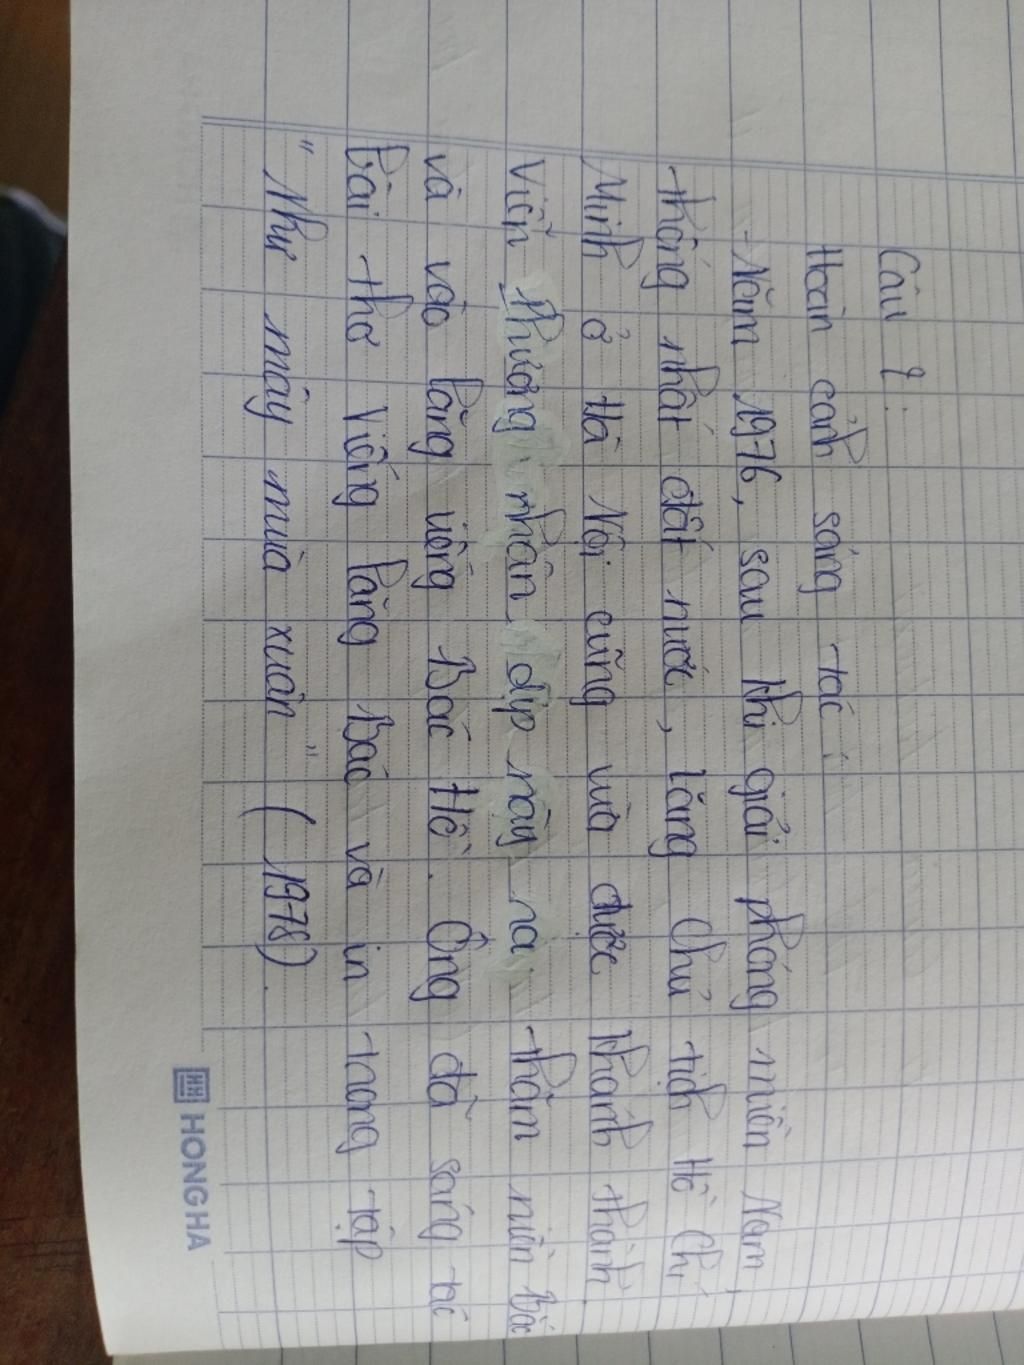 Câu 2:
Hoàn cảnh sáng tác:
- Năm 1976, sau khi giải phóng miền Nam,
thống nhất đất nước, lăng Chủ tịch Hồ Chí
Minh ở Hà Nội cũng vừa được khánh thành.
Viễn Phương nhân dịp này ra thăm miền Bắc
và vào lăng viếng Bác Hồ. Ông đã sáng tác
bài thơ Viếng lăng Bác và in trong tập
"Như mây mùa xuân" (1978).
HONG HA